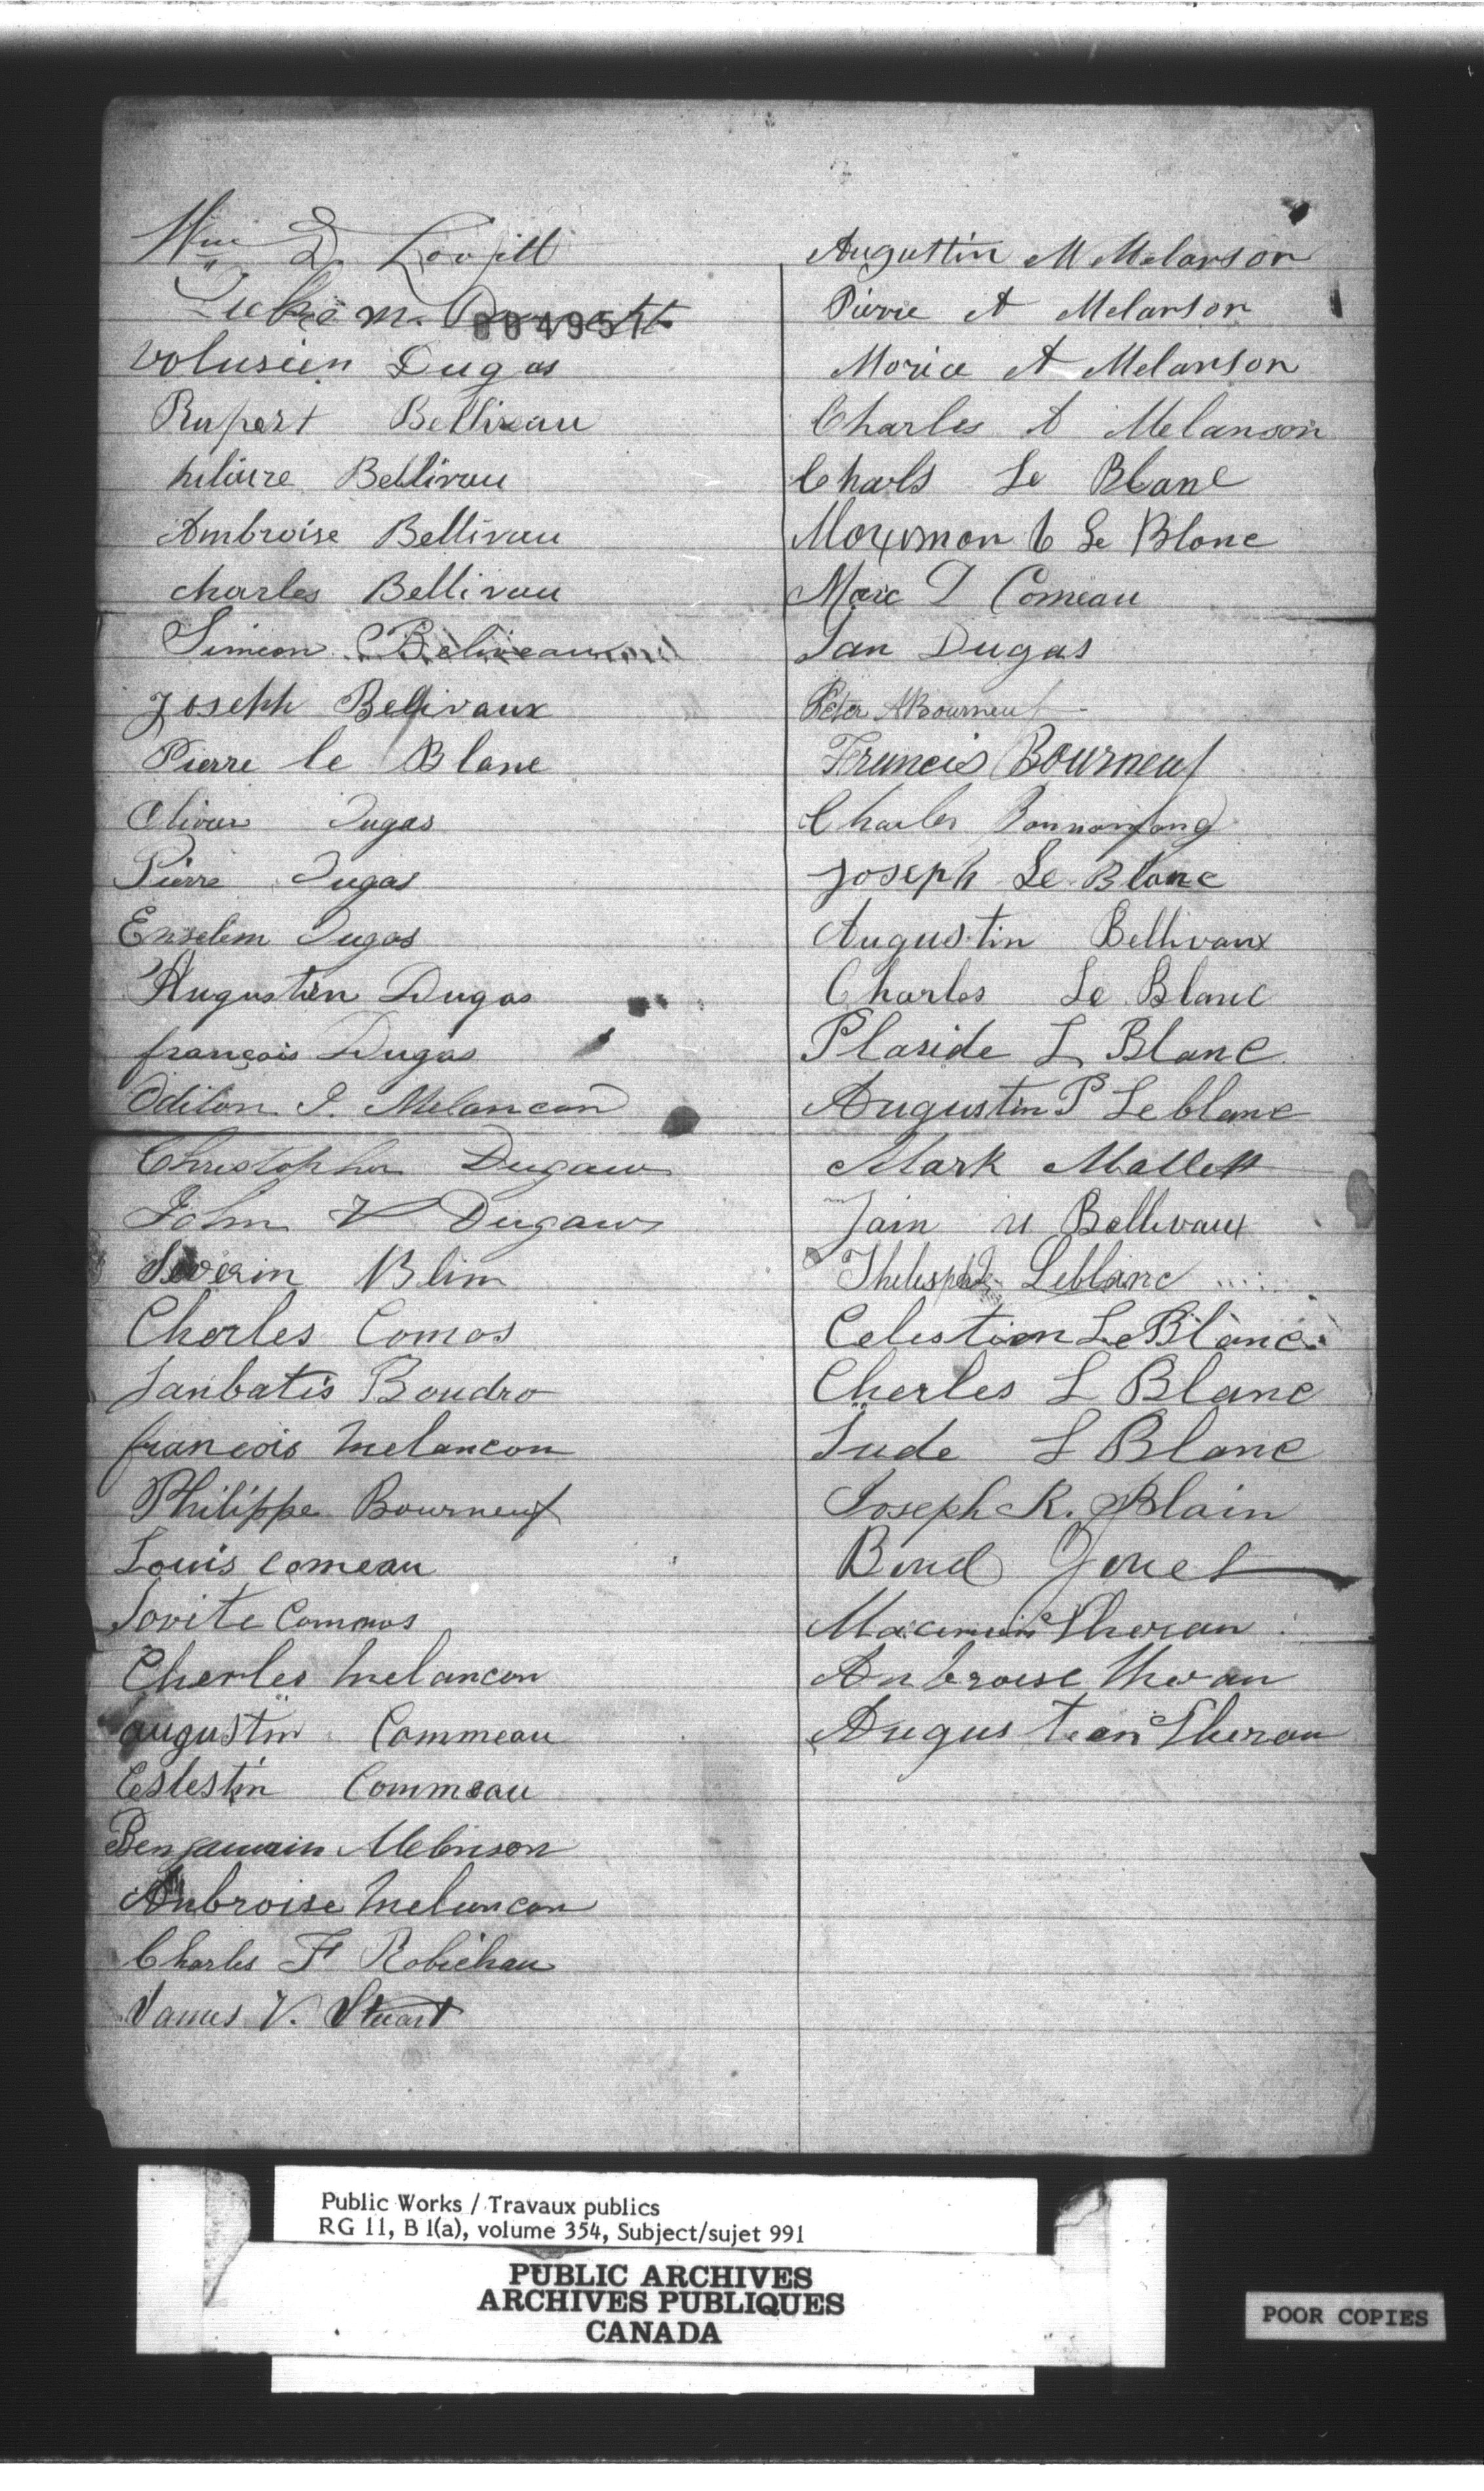 Wm D. Lovitt
M.
884951
Volusien Dugas
Rupert Belliveau
hilaire Bellivau
Ambroise Bellivau
charles Bellivau
Simeon Beliveau
Joseph Bellivaux
Pierre le Blanc
Olivier Dugas
Pierre Dugas
Enselem Dugas
Augustin Dugas
françois Dugas
Odilon I. Melancon
Christopher Dugaw
John V Dugaw
Severin Blim
Cherles Comos
Janbatis Boudro
francois Melancon
Philippe Bourneuf
Louis Comeau
Jovite Commos
Cherles Melancon
augustin Commeau
Ceslestin Commeau
Benjamain
Anbroise Melancon
Charles F Robichau
James V. Stuart
Augustin M Melanson
Pierre A Melanson
Morice A Melanson
Charles A Melanson
Charls Le Blanc
Le Blanc
Marc D Comeau
Jan Dugas
Peter A Bourneuf
Francis Bourneuf
Charles
Joseph Le Blanc
Augustin Bellivaux
Charles Le Blanc
Plaside L Blanc
Augustin P Leblanc
Mark Mallett
Jain Bellivaux
Leblanc
Celestien LeBlanc
Cherles L Blanc
Jude L Blanc
Joseph R. Blain
Maximin Theriau
Anbroise
Augustien Theriau
Public Works / Travaux publics
RG 11, B 1(a), volume 354, Subject/sujet 991
PUBLIC ARCHIVES
ARCHIVES PUBLIQUES
CANADA
POOR COPIES